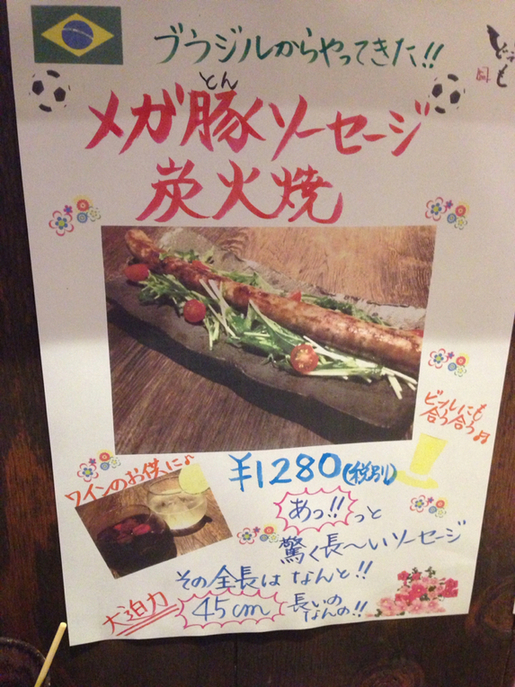 ブラジルからやってきた!!
とん
メガ豚ソーセージ
炭火焼
ビールにも
合う合う♬
ワインのお供に♪
¥1280(税別)
あっ!!っと
驚く長〜いソーセージ
その全長はなんと!!
大迫力
45cm
長いの
なんの!!